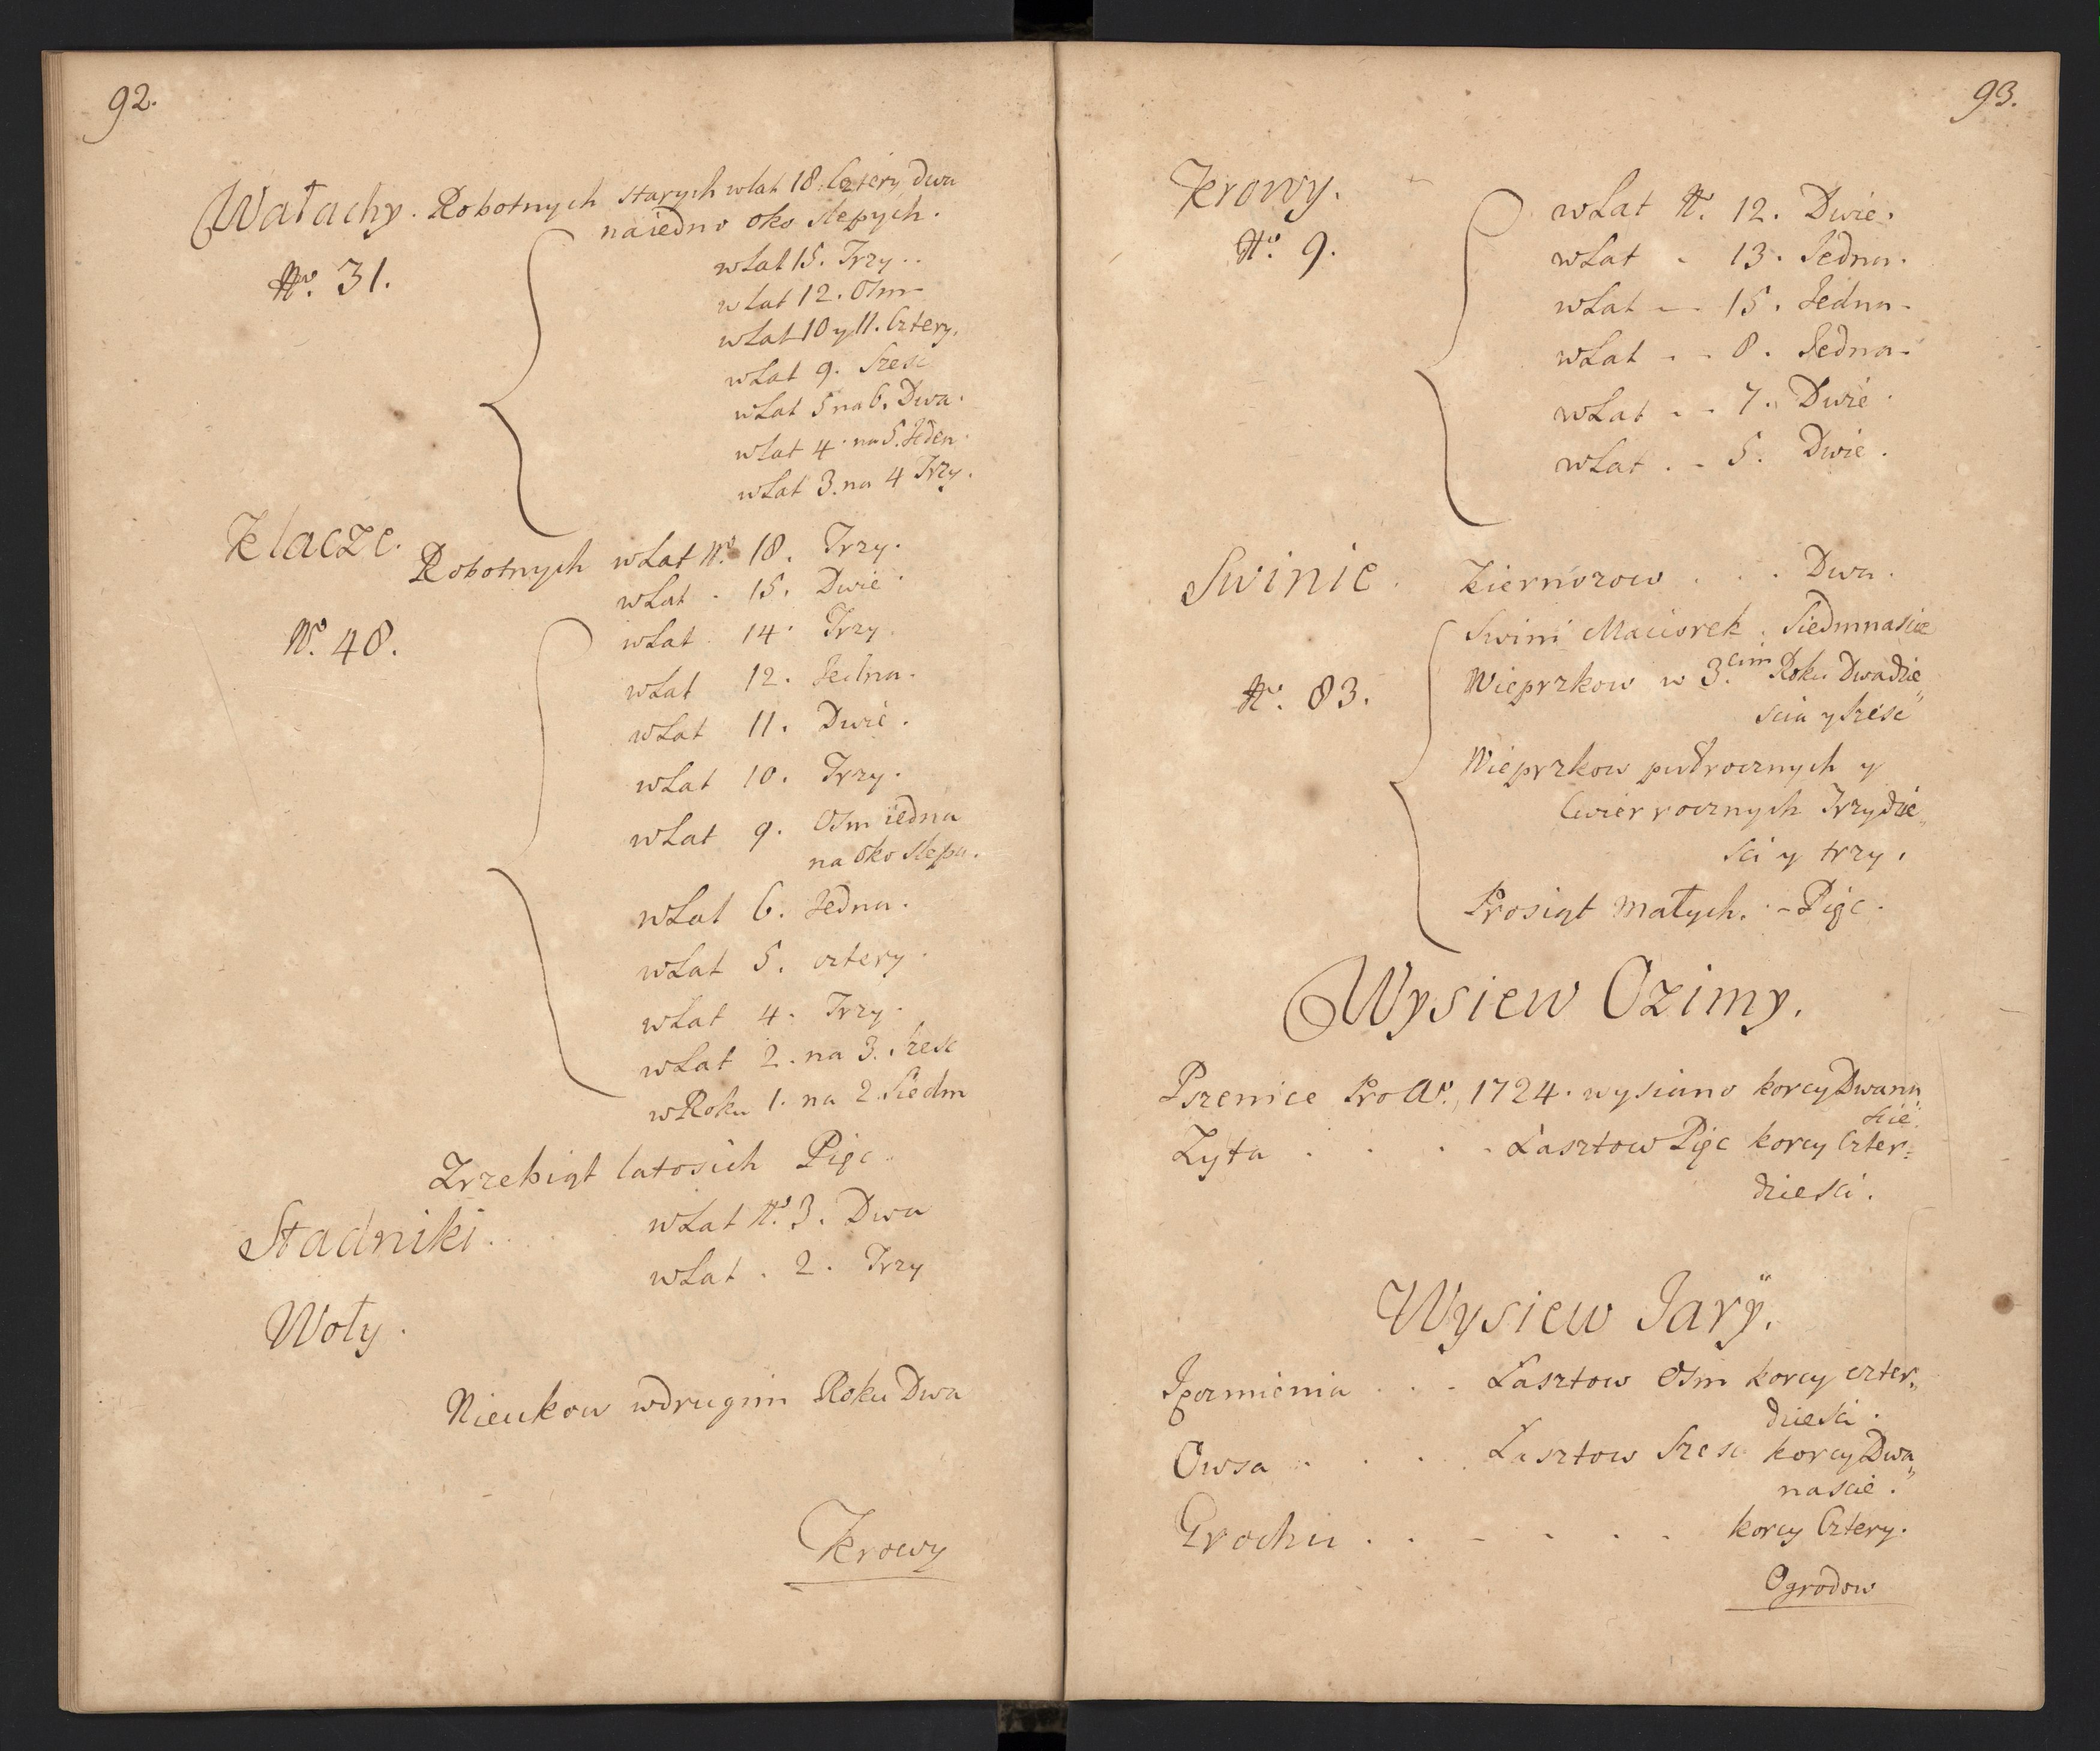 92.
Wałachy. Robotnych starych wlat 18. Cztery, dwa
naiedno oko slepych.
No. 31.
wLat 15. Trzy..
wlat 12. Osm
wLat 10 y 11. Cztery.
wLat 9. Szesc
wLat 5 na 6. Dwa.
wLat 4. na 5. Jeden.
wLat 3. na 4 Trzy.
Klacze.
Robotnych wLat No 18. Trzy.
wLat . 15. Dwie.
No. 48.
wLat 14. Trzy
wLat 12. Jedna.
wLat 11. Dwie.
wLat 10. Trzy.
wLat 9. Osm iedna
na oko slepa.
wLat 6. Jedna.
wLat 5. cztery.
wLat 4. Trzy.
wLat 2. na 3. Szesc
wRoku 1. na 2 Siedm
Zrzebiąt latosich Pięc.
Stadniki . . . wLat No 3. Dwa
wLat . 2. Trzy
Woły.
Nieukow wdrugim Roku Dwa
Krowy
93.
Krowy.
No. 9.
wLat No. 12. Dwie.
wLat . 13. Jedna.
wLat - 15. Jedna.
wLat - - 8. Jedna.
wLat - - 7. Dwie.
wLat . - 5. Dwie.
Swinie. Kiernozow . . . Dwa.
Swini Maciorek. Siedmnascie
Wieprzkow w 3.cim Roku Dwadzie
scia y szesc
No. 83.
Wieprzkow pułrocznych y
Cwierrocznych Trzydzie„
sci y trzy.
Prosiąt małych. - Pięc.
Wysiew Ozimy.
Pszenice Pro Ao. 1724. wysiano korcy Dwana
scie.
Zyta . . . . Łasztow Pięc korcy Czter=
dziesci.
Wysiew Jarÿ.
Jęczmienia . . . Łasztow Osm korcy czter„
dziesci.
Owsa . . . . Łasztow Szesc korcy Dwa„
nascie.
Grochu . . - - . - korcy Cztery.
Ogrodow